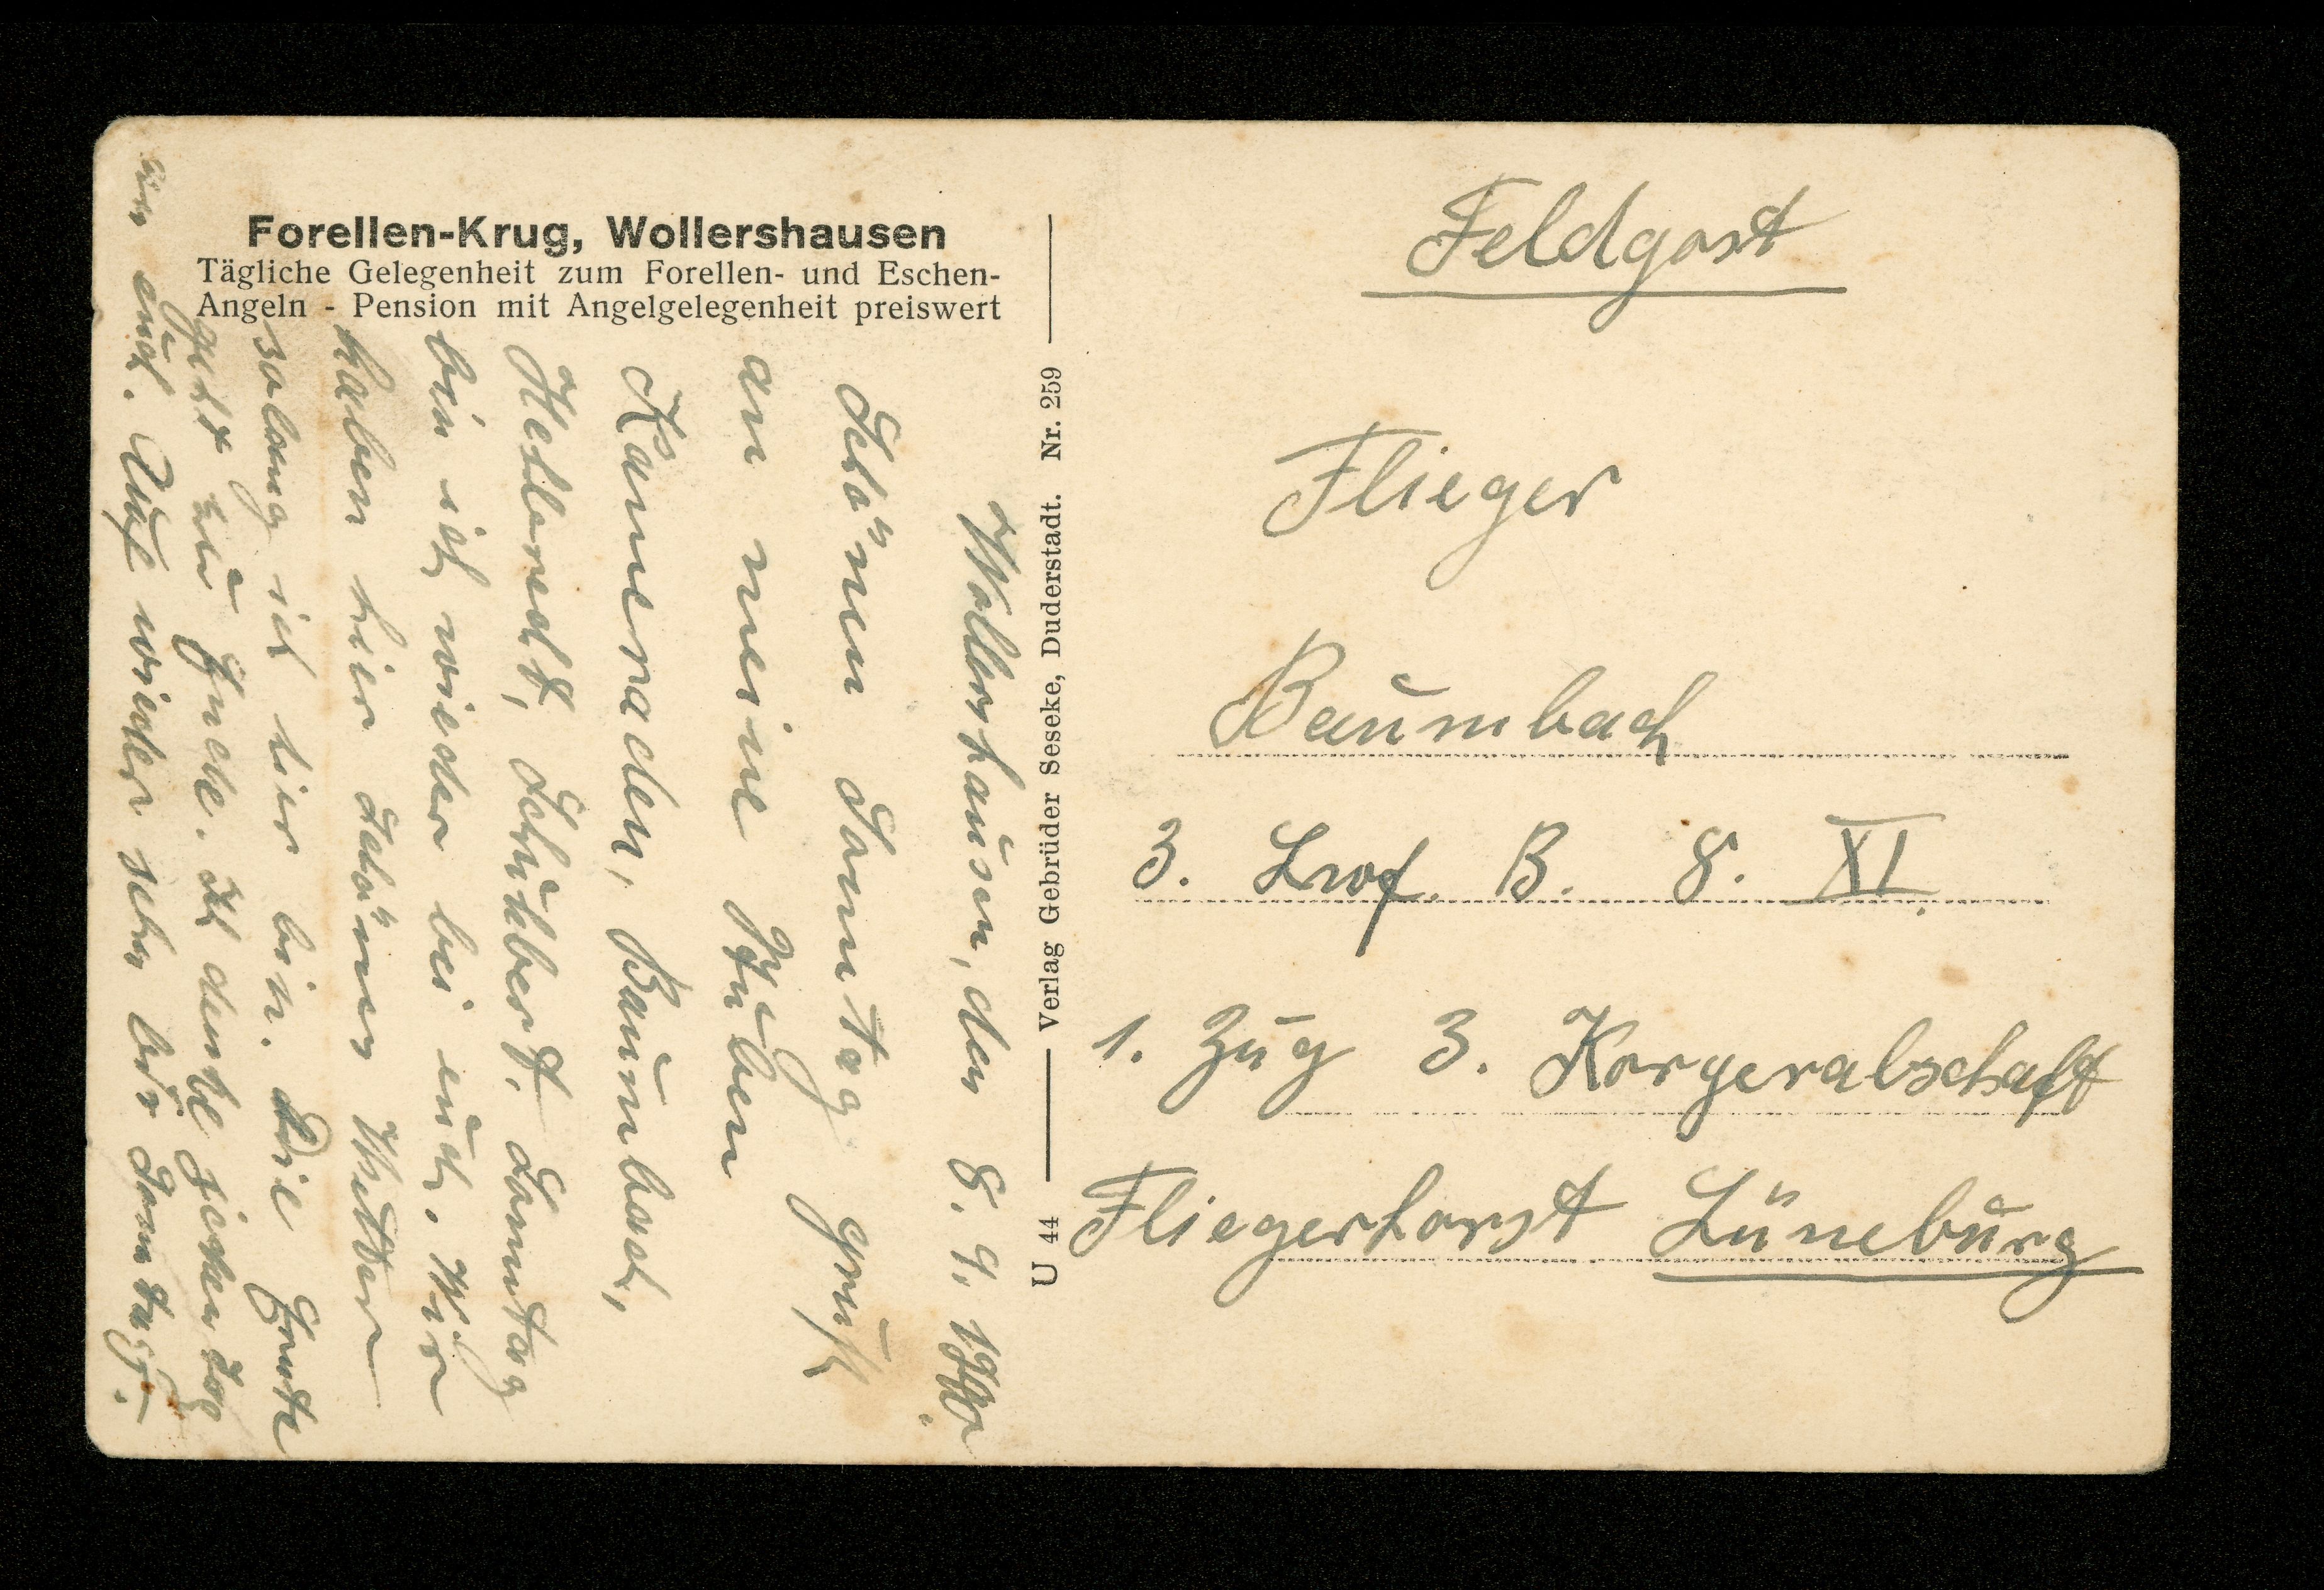 Forellen-Krug, Wollershausen
Tägliche Gelegenheit zum Forellen- und Eschen-
Angeln - Pension mit Angelgelegenheit preiswert
Wollershausen, den 8. 9.
Schönen Sonntag gruß
an meine Stuben
Kameraden, Baumbach,
Schukbert. Sonntag
bin ich wieder bei euch. Wir
haben hier schönes Wetter
solang ich hier bin. Die Ernte
geht zu Ende. Ich denke
an euch. Auf wieder sehn bis Sonntag.
U 44 Verlag Gebrüder Seseke, Duderstadt. Nr. 259
Feldpost
Flieger
Baumbach
3. Lwf. B. 8. XI.
1. Zug 3. Korperalschaft
Fliegerhorst Lüneburg